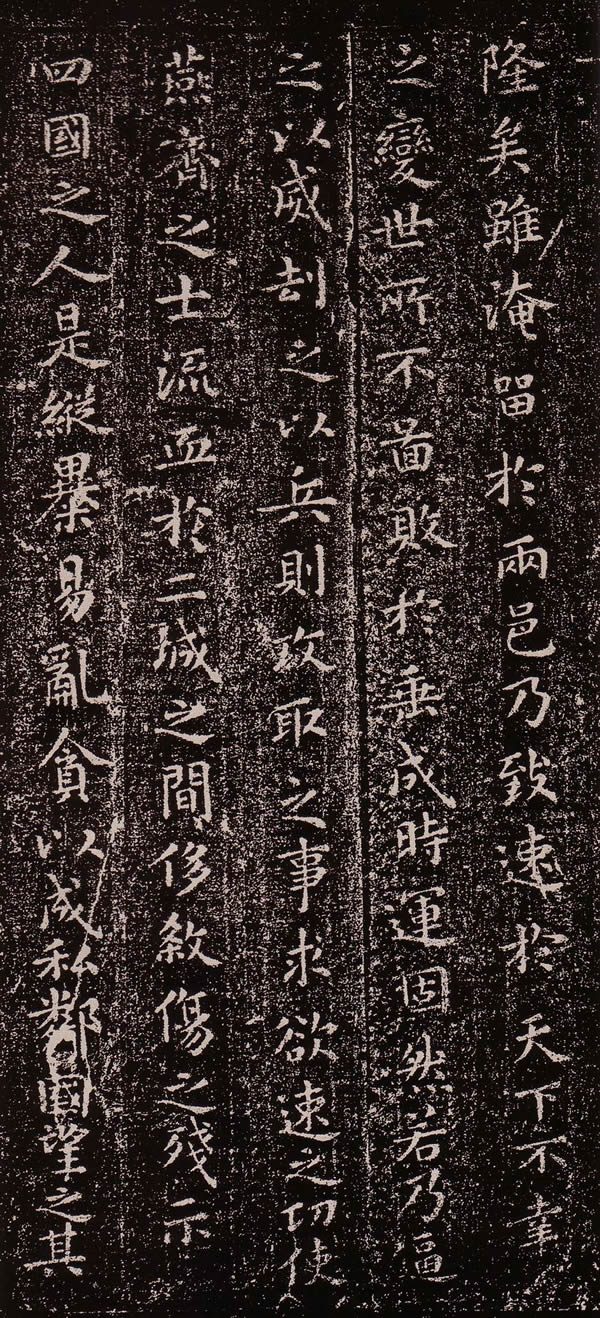 隆矣雖淹留於兩邑乃致速於天下不幸
之變世所不啚敗於垂成時運固然若乃逼
之以威刧之以兵則攻取之事求欲速之功使
燕齊之士流血於二城之間侈煞傷之殘示
四國之人是縱暴易亂貪以成私鄰國望之其